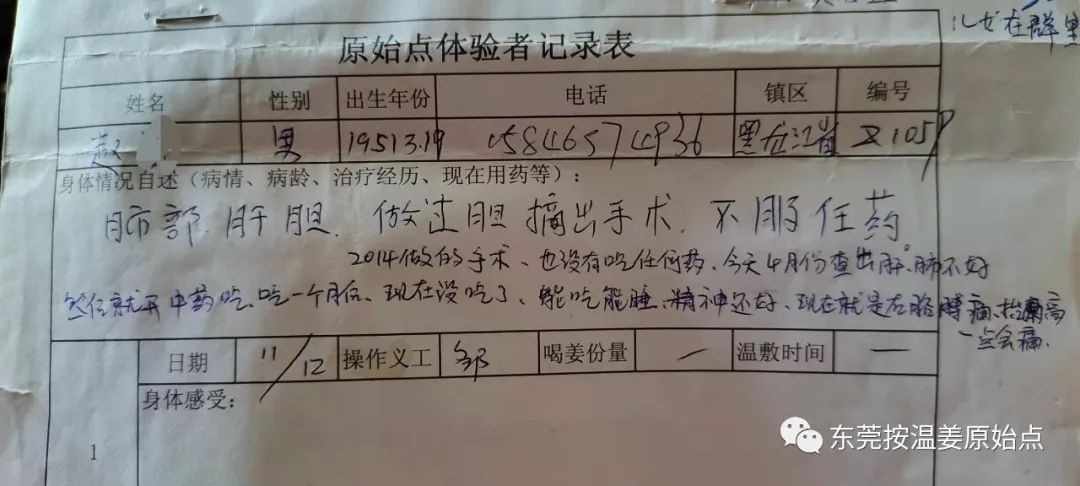 儿女在群里
原始点体验者记录表
姓名 性别 出生年份 电话 镇区 编号
赵 男 1951 3.19 15846574936 黑龙江省 1059
身体情况自述（病情、病龄、治疗经历、现在用药等）：
肺部.肝胆.做过胆摘出手术.不服任药
2014做的手术、也没有吃任何药、今天4月份查出肝.肺不好
然后就开中药吃、吃一个月后、现在没吃了、能吃能睡、精神还好、现在就是右胳膊痛、抬高
一点会痛.
日期 11/12 操作义工 邹 喝姜份量 — 温敷时间 —
1 身体感受：
东莞按温姜原始点